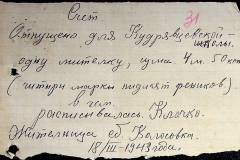 Счет
31
Отпущено для Кудрявцевской
школы.
одну метелку, сума 4 м. 50 коп
(чотири марки пидесят феников)
в чем
расписывалась Клочко.
Жительница с. Колосовка.
18/III-1943 года.